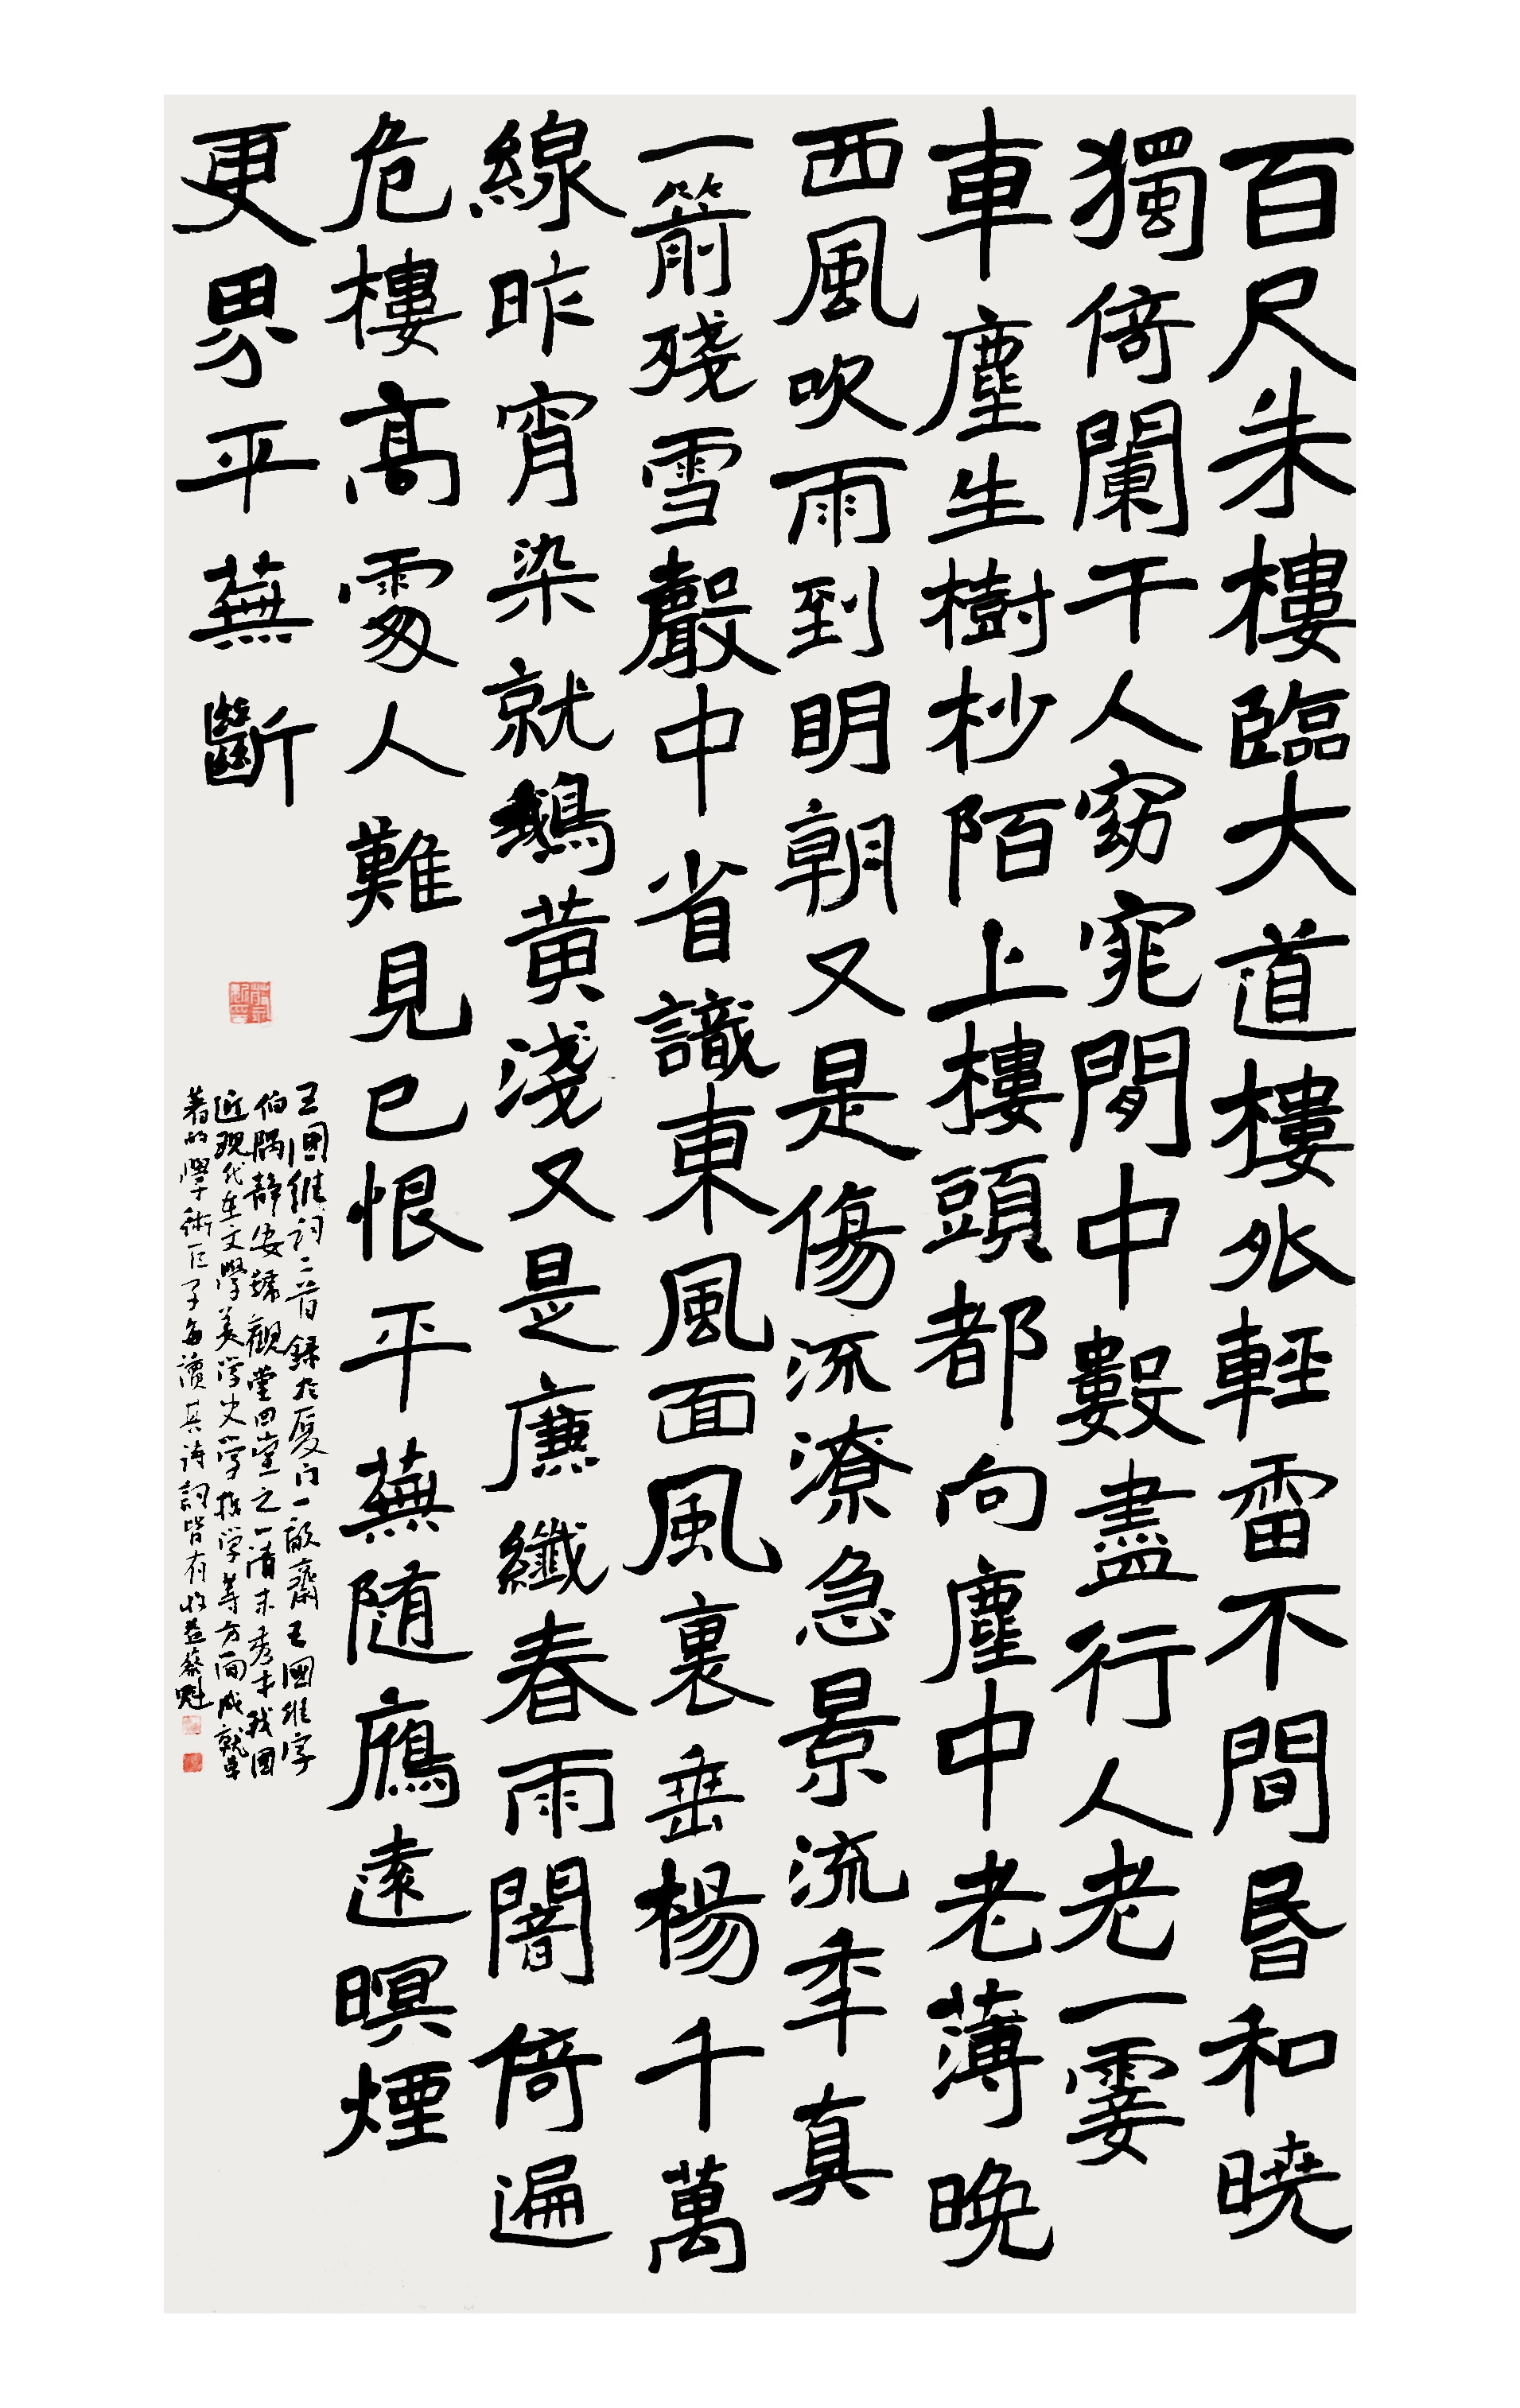 百尺朱樓臨大道樓外輕雷不間昏和曉
獨倚闌干人窈窕閒中數盡行人老一霎
車塵生樹杪陌上樓頭都向塵中老薄晚
西風吹雨到明朝又是傷流潦急景流年真
一箭殘雪聲中省識東風面風裏垂楊千萬
線昨宵染就鵝黃淺又是廉纖春雨闇倚遍
危樓高處人難見已恨平蕪隨鴈遠暝煙
更界平蕪斷
王國維詞二首錄於廈门一融齋王國維字
伯隅靜安號觀堂四堂之一清末秀才我國
近現代在文學美学史学哲学等方面成就卓
著的學術巨子每讀其诗詞皆有收益蔡魁